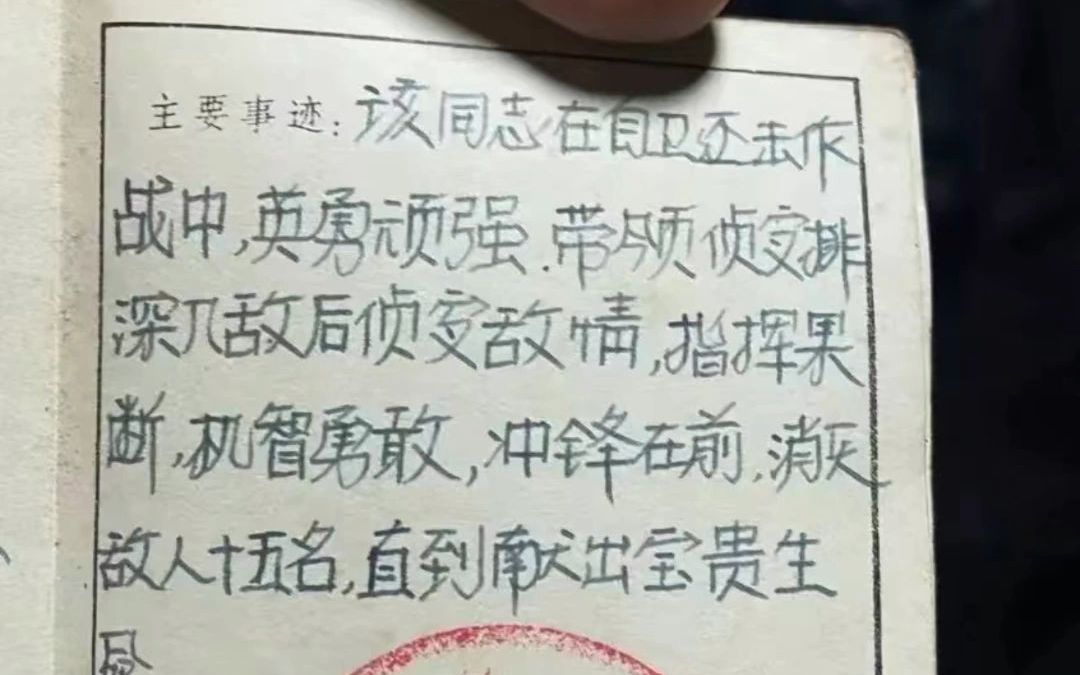 主要事迹：该同志在自卫还击作
战中,英勇顽强.带领侦察排
深入敌后侦察敌情,指挥果
断,机智勇敢,冲锋在前.消灭
敌人十五名,直到献出宝贵生